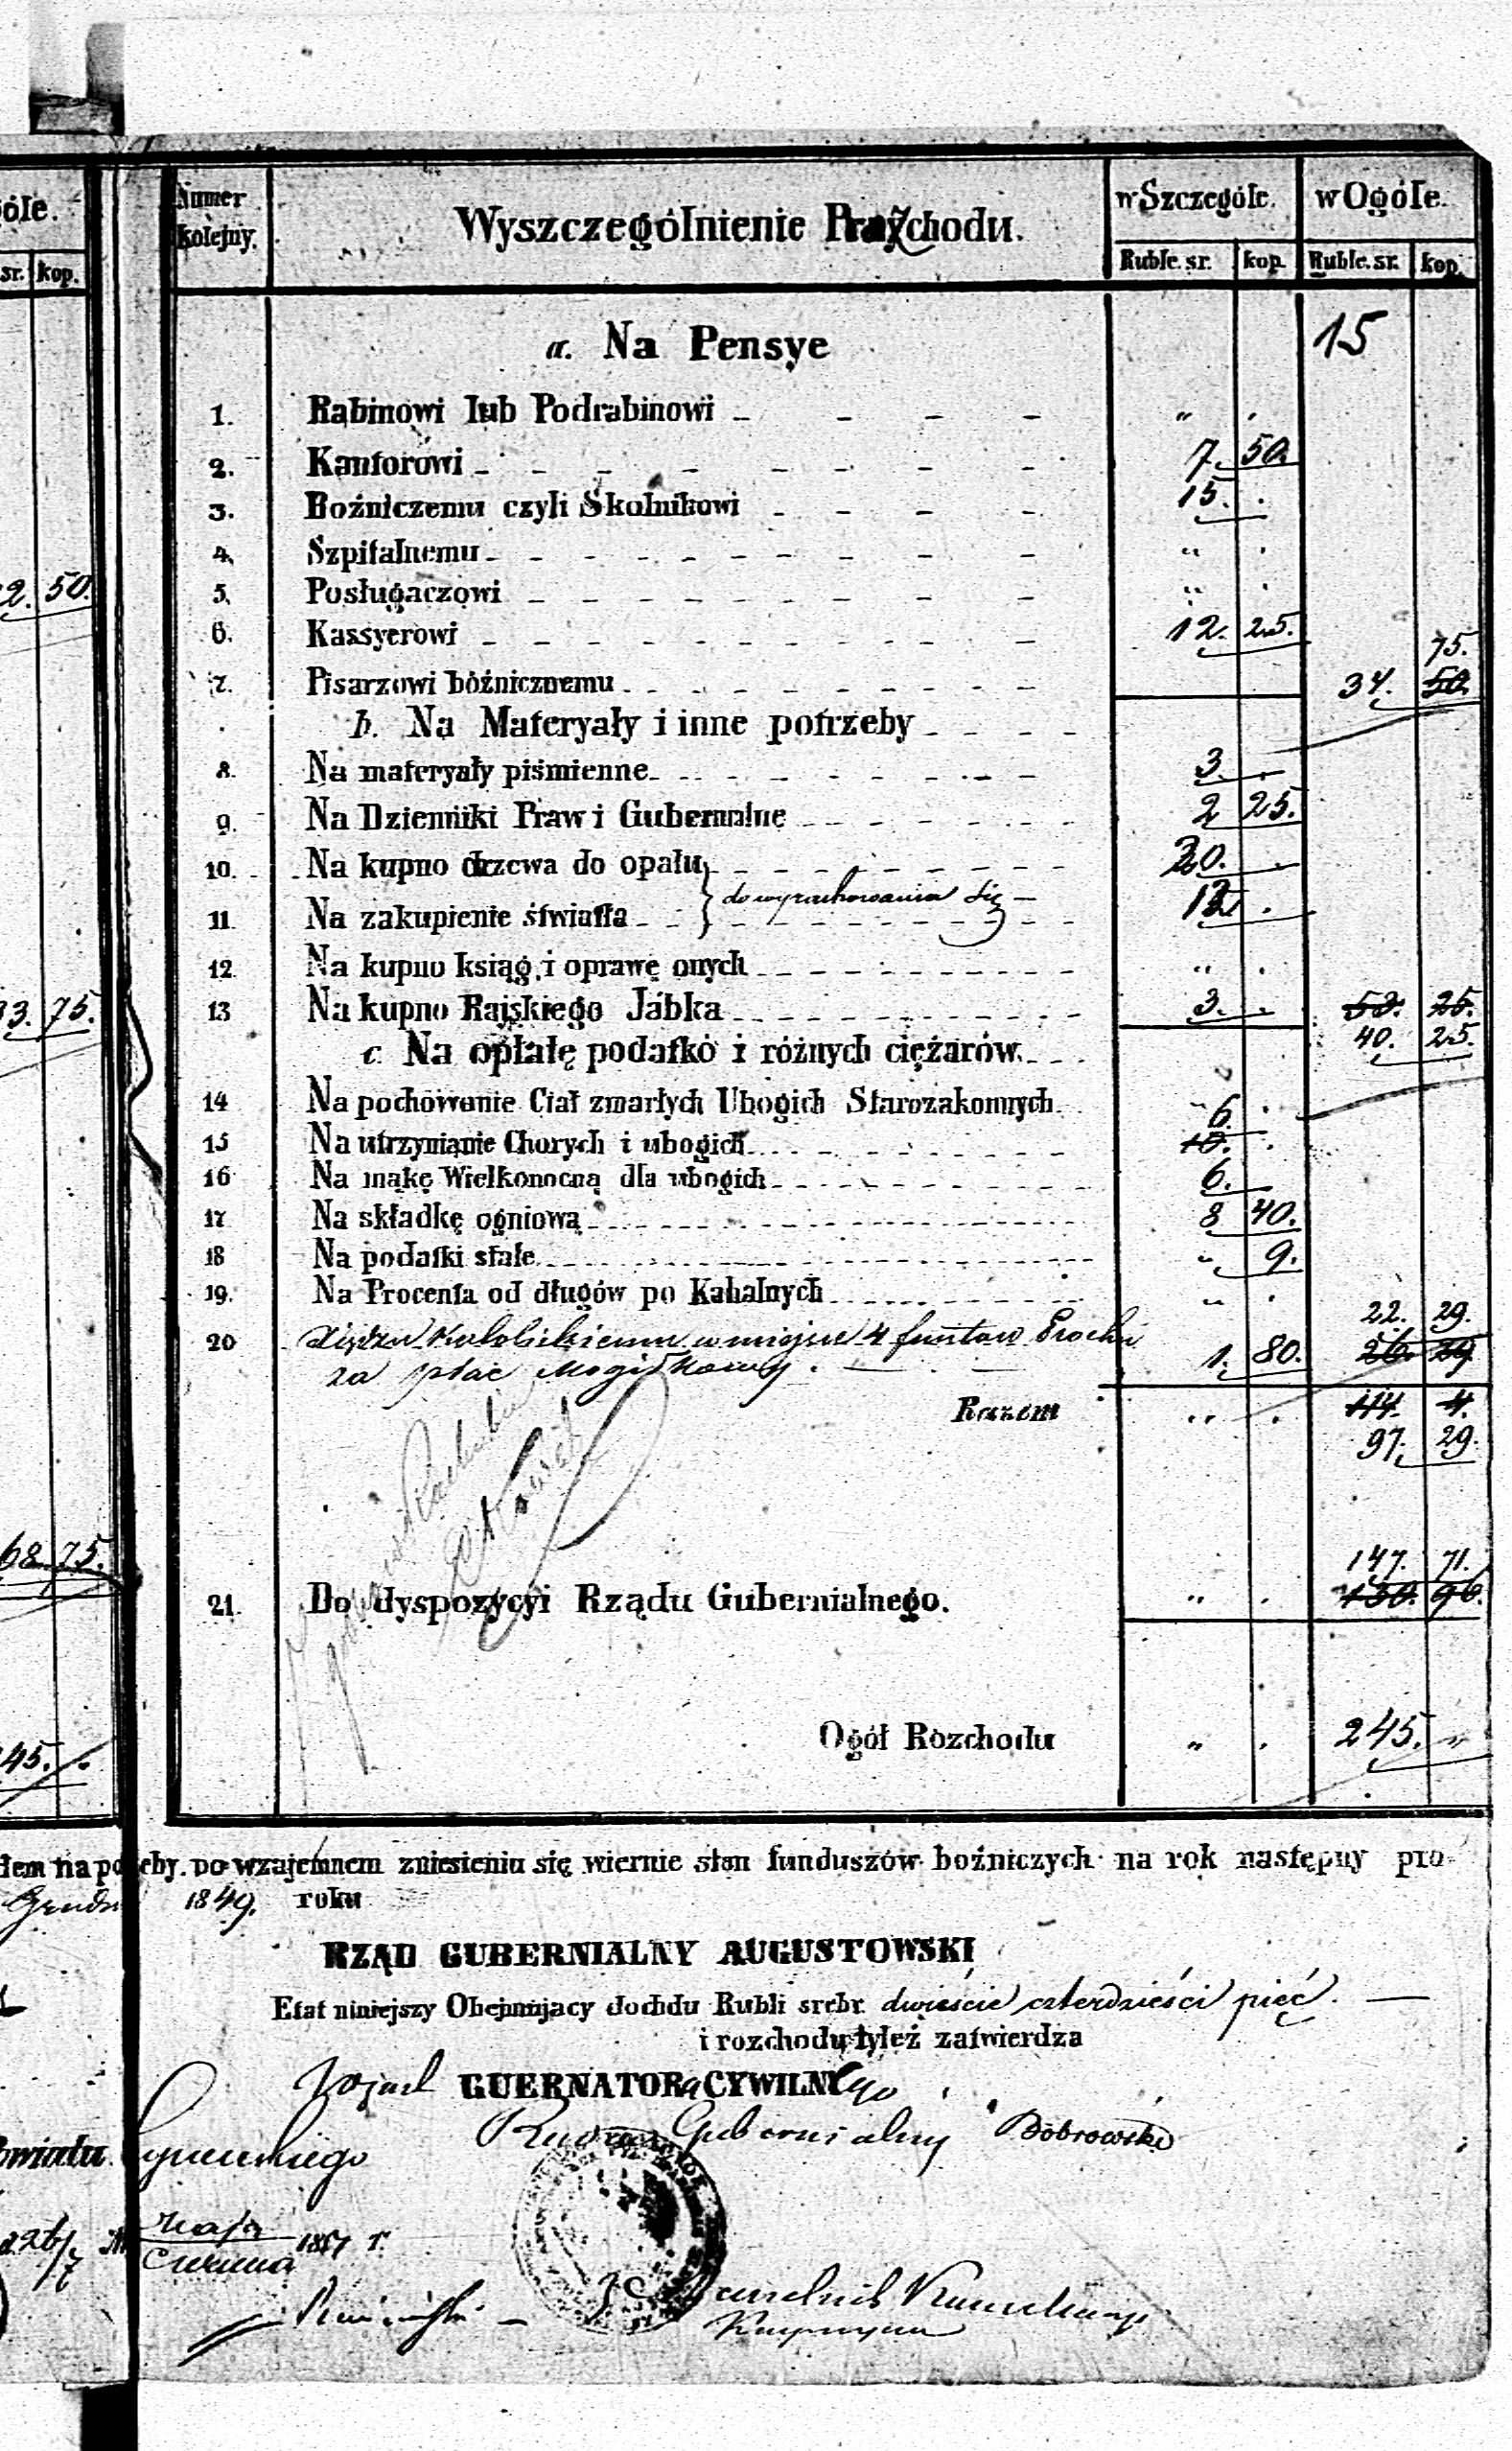 óle.
sr. kop.
2. 50.
3. 75.
68 75.
45. .
Numer kolejny. Wyszczególnienie Rozchodu. w Szczególe. w Ogóle.
Ruble. sr. kop. Ruble. sr. kop.
a. Na Pensye 15
1. Rabinowi lub Podrabinowi - - - - „ .
2. Kantorowi - - - - - - - - 7. 50.
3. Boźniczemu czyli Skolnikowi - - - - 15. .
4. Szpitalnemu - - - - - - - - „ .
5. Posługaczowi - - - - - - - - „ .
6. Kassyerowi - - - - - - - - 12. 25.
75.
7. Pisarzowi bóźnicznemu - - - - - - - 34. 50.
b. Na Materyały i inne potrzeby - - - -
8. Na materyały piśmienne - - - - - - - 3. .
9. Na Dzienniki Praw i Gubernialne - - - - - 2 25.
10. Na kupno drzewa do opału - - - - - - 20. .
do wyrachowania się -
11. Na zakupienie światła - - - - - - - 12 .
12. Na kupno ksiąg i oprawę onych - - - - - „ .
13 Na kupno Rajskiego Jabka - - - - - - 3. . 58. 25.
40. 25.
c. Na opłatę podatkó i różnych ciężarów. - -
14 Na pochowanie Ciał zmarłych Ubogich Starozakonnych. „ .
6.
15 Na utrzymanie Chorych i ubogich - - - - - 10. .
16 Na mąkę Wielkonocną dla ubogich - - - - - 6. .
17 Na składkę ogniową - - - - - - - 8 40.
18 Na podatki stałe - - - - - - - „ 9.
19. Na Procenta od długów po Kahalnych - - - - „ .
22. 29.
20 Xiędzu Katolickiemu w miejsce 4 funtów Prochu
za plac Mogiłkowy. — 1. 80. 26. 29
Razem „ . 114. 4.
97. 29.
147. 71.
21. Do dyspozycyi Rządu Gubernialnego. „ . 130. 96.
Ogół Rozchodu „ . 245. „
łem na potrzeby. po wzajemnem zniesieniu się wiernie stan funduszów boźniczych na rok następny pro-
Grudn 1849. roku
RZĄD GUBERNIALNY AUGUSTOWSKI
Etat niniejszy Obejmujacy dochdu Rubli srebr. dwieście czterdzieści pięć. —
i rozchodu tyleż zatwierdza
GUERNATORa CYWILNego
Radca Gubernialny Dobrowski
owiatu
Maja
Czerwca
1851 r.
Naczelnik Kancellaryi